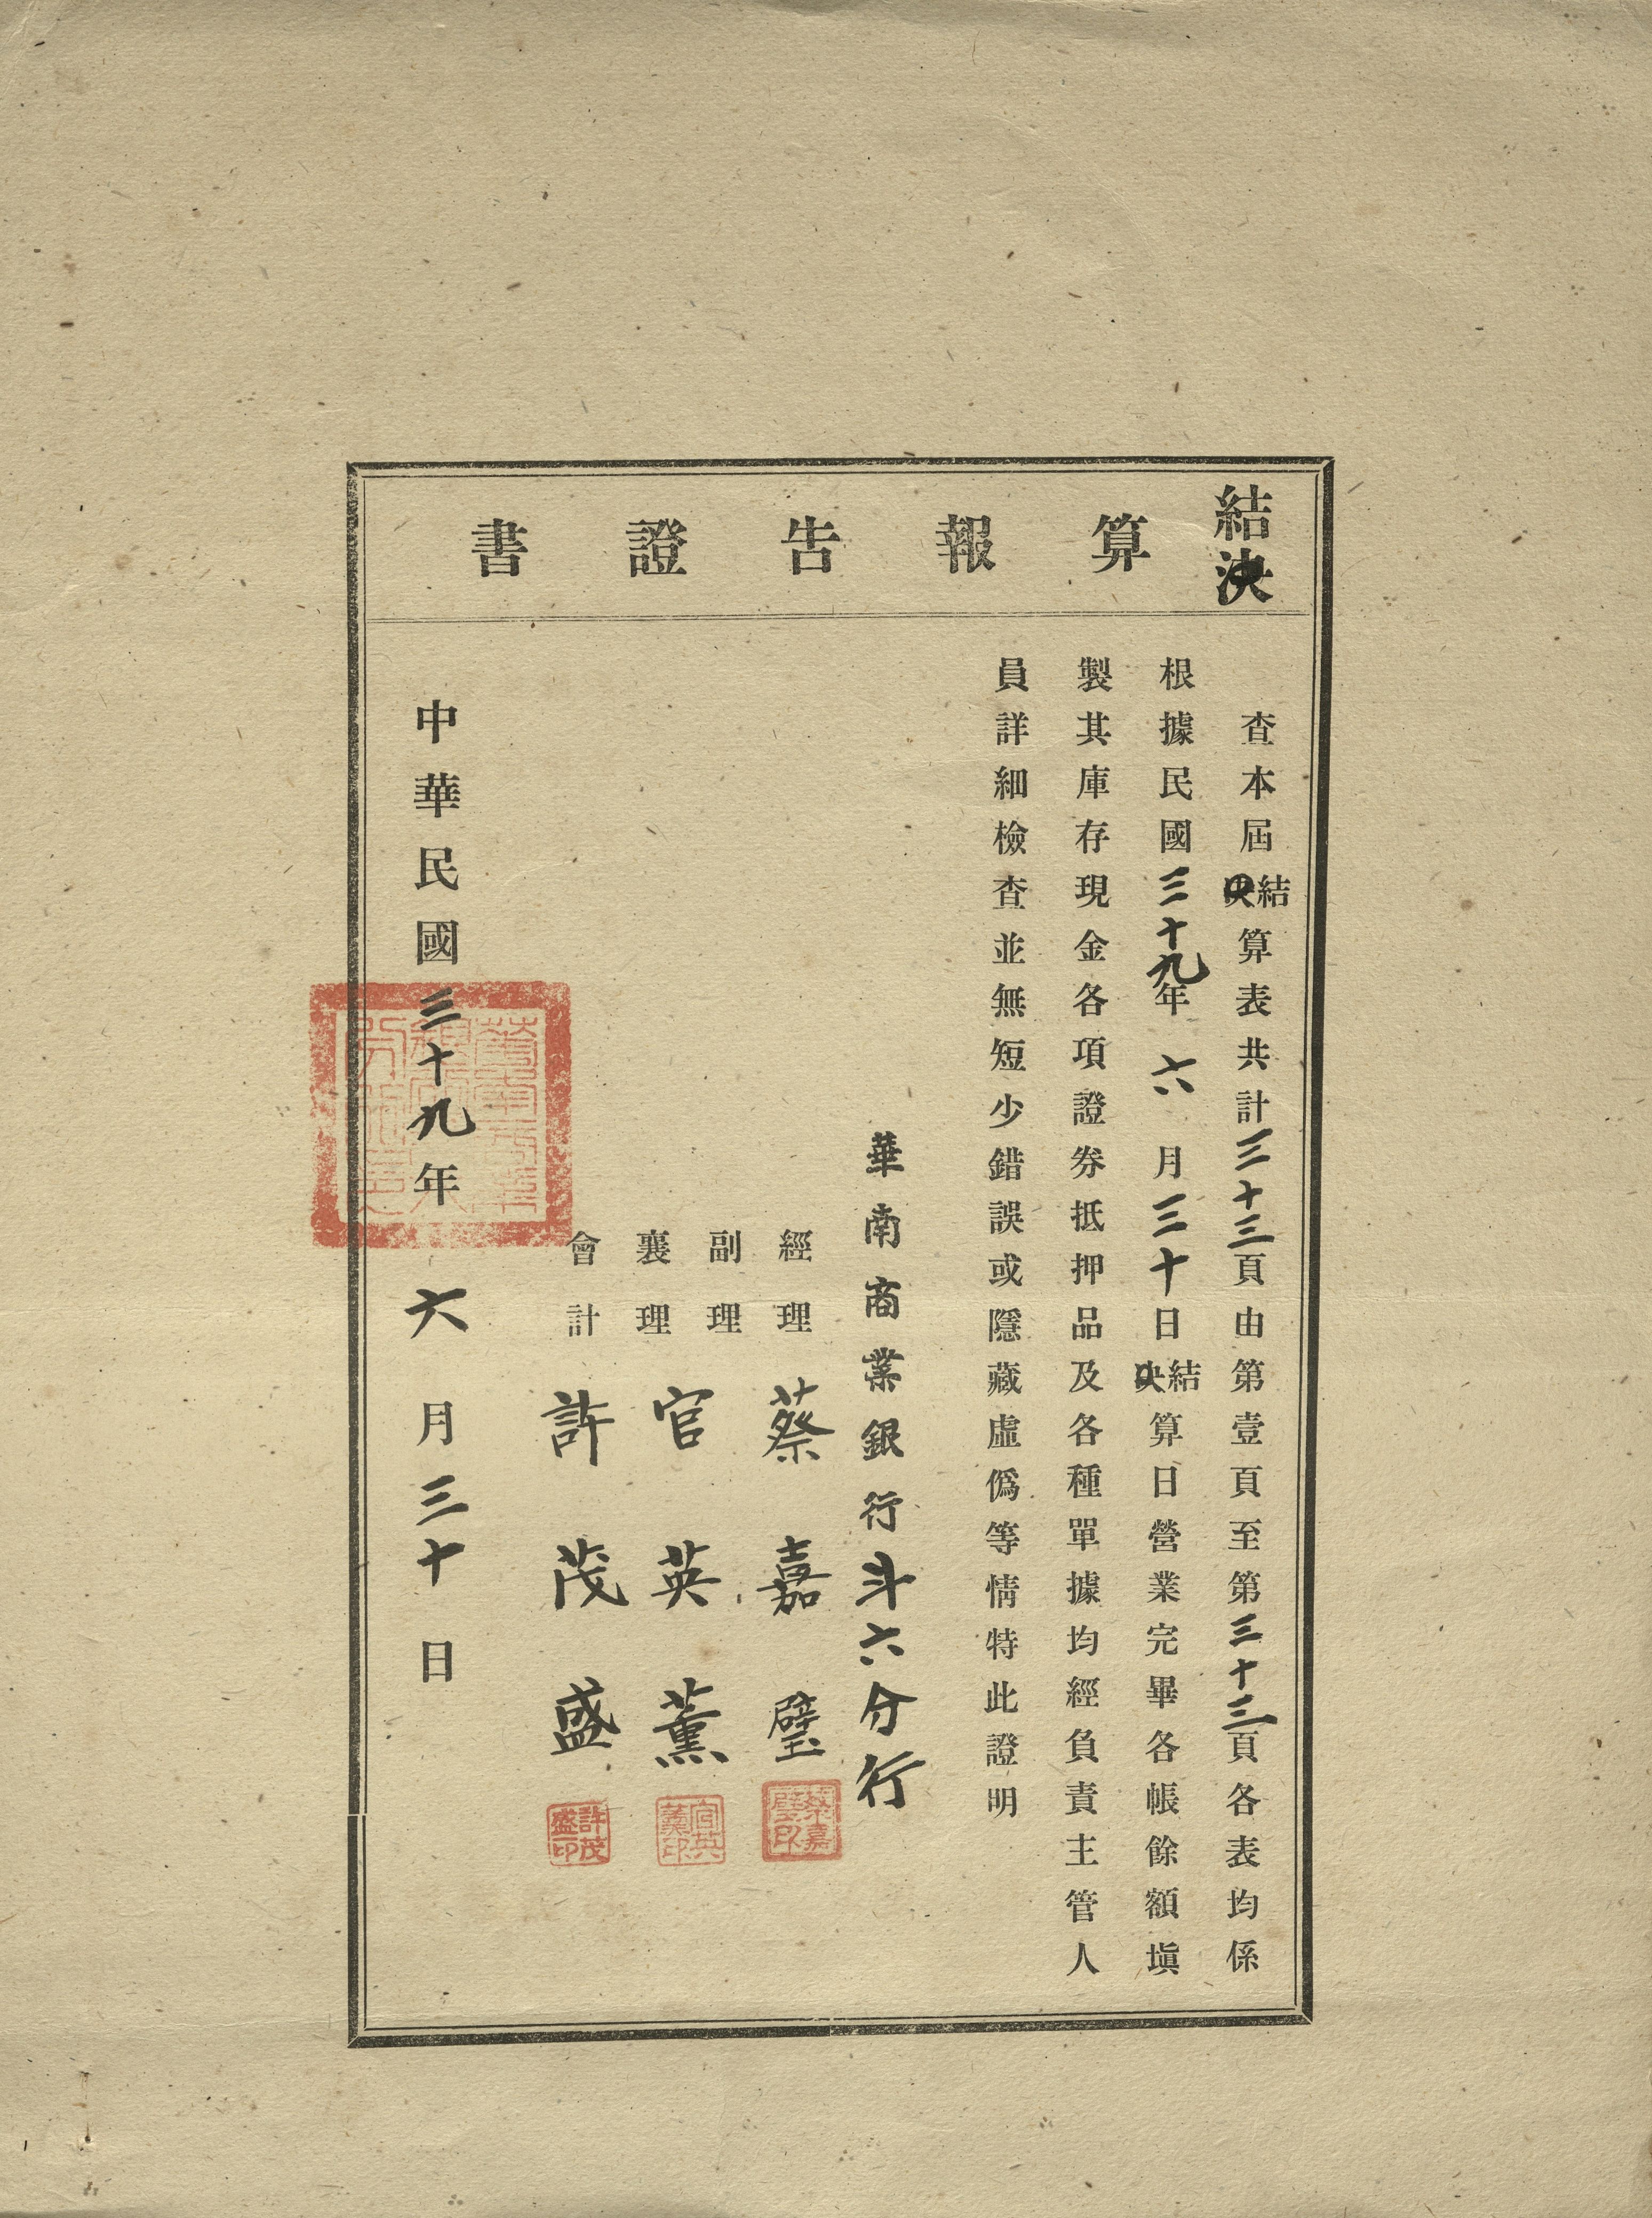 結決算報告證書
查本屆結決算表共計三十三頁由第壹頁至第三十三頁各表均係
根據民國三十九年六月三十日結決算日營業完畢各帳餘額塡
製其庫存現金各項證券抵押品及各種單據均經負責主管人
員詳細檢查並無短少錯誤或隱藏虛僞等情特此證明
華南商業銀行斗六分行
經理 蔡嘉璧
蔡嘉璧印
副理
襄理 官英薰
官英薰印
會計 許茂盛
許茂盛印
中華民國三十九年六月三十日